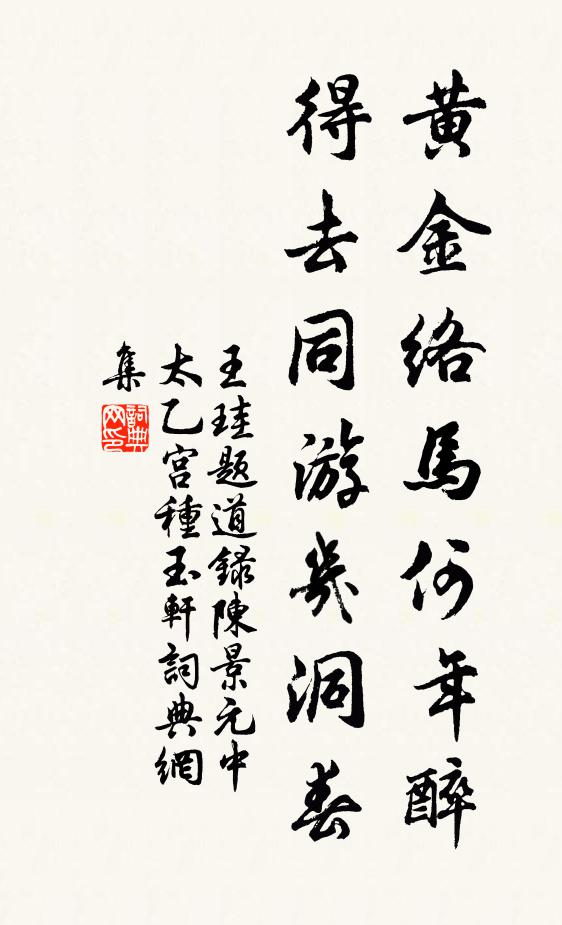 黃金絡馬何年醉
得去同游幾洞春
王珪題道錄陳景元中
太乙宮種玉軒詞典網
集
詞典網印